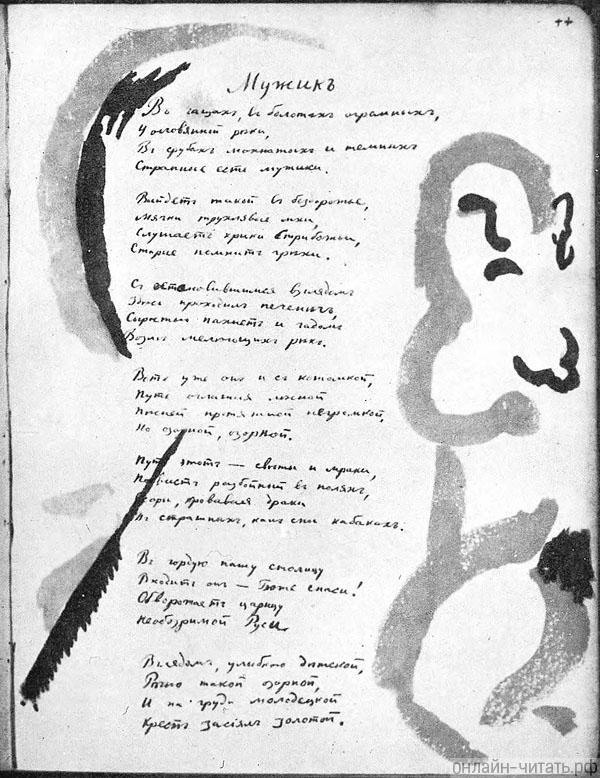 44
Мужикъ
Въ чащахъ, въ болотахъ огромныхъ,
У оловянной рѣки,
Въ срубахъ мохнатыхъ и темныхъ
Странные есть мужики.
Выйдетъ такой въ бездорожье,
Мячки трухлявые мхи,
Слушаетъ крики Стрибожьи,
Старые помнитъ грѣхи.
Съ остановившимся взглядомъ
Здѣсь проходилъ печенѣгъ,
Сыростью пахнетъ и гадомъ
Возлѣ мелѣющихъ рѣкъ.
Вотъ уже онъ и съ котомкой,
Путь оглашая лѣсной
Пѣсней протяжной негромкой,
Но озорной, озорной.
Путь этотъ — свѣты и мраки,
Посвистъ разбойный въ поляхъ,
Ссоры, кровавыя драки
Въ страшныхъ, какъ сны кабакахъ.
Въ гордую нашу столицу
Входитъ онъ — Боже спаси!
Обворожаетъ царицу
Необозримой Руси
Взглядомъ, улыбкою дѣтской,
Рѣчью такой озорной,
И на груди молодецкой
Крестъ засіялъ золотой.
онлайн-читать.рф